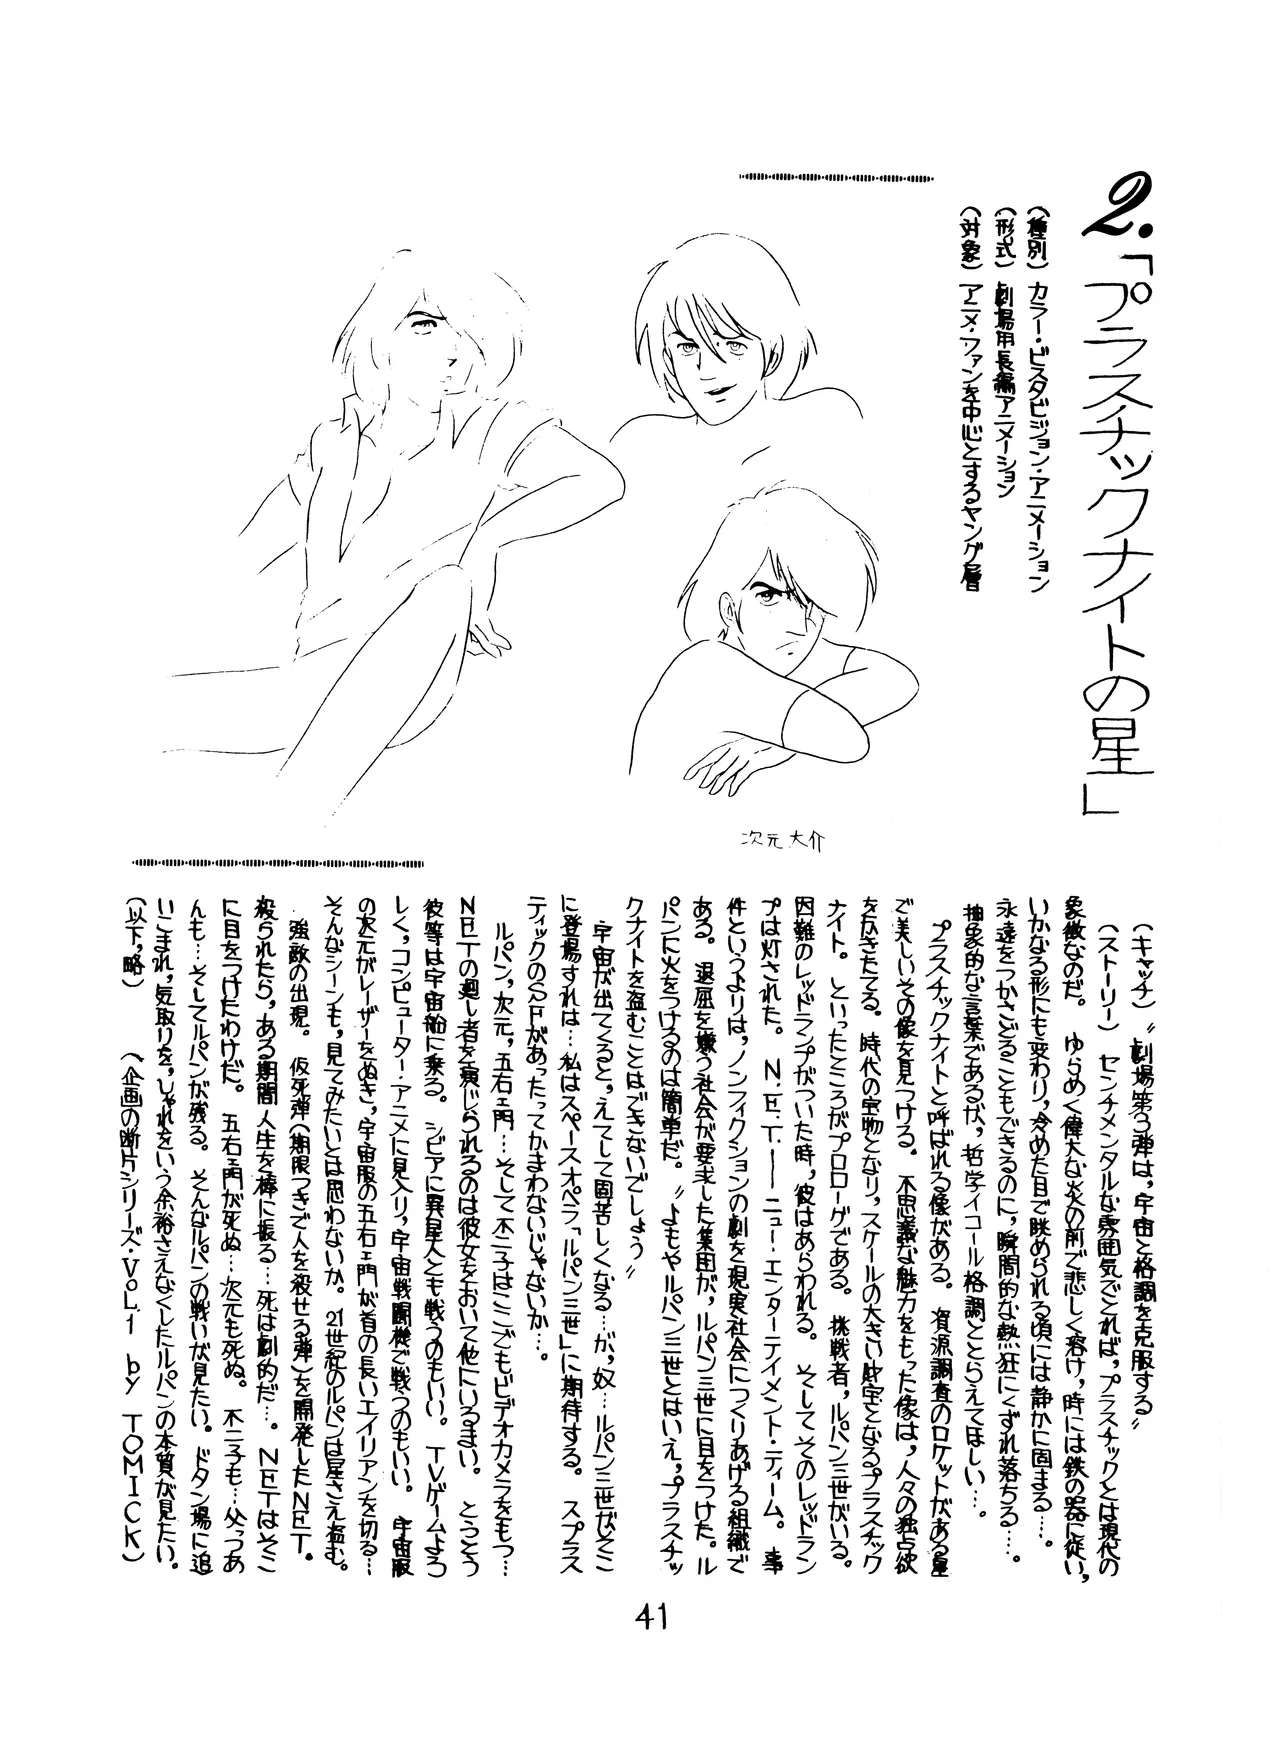 2.「プラスチックナイトの星」
(種別) カラー・ビスタビジョン・アニメーション
(形式) 劇場用長編アニメーション
(対象) アニメ・ファンを中心とするヤング層
次元大介
(キャッチ)〝劇場第3弾は,宇宙と格調を克服する〟
(ストーリー) センチメンタルな雰囲気でとれば,プラスチックとは現代の
象徴なのだ。ゆらめく偉大な火の前で悲しく溶け,時には鉄の器に従い,
いかなる形にも変わり,冷めた目で眺められる頃には静かに固まる…。
永遠をつかさどることもできるのに,瞬間的な熱狂にくずれ落ちる…。
抽象的な言葉であるが,哲学イコール格調ととらえてほしい…。
プラスチックナイトと呼ばれる像がある。資源調査のロケットがある星
で美しいその像を見つける。不思議な魅力をもった像は,人々の独占欲
をかきたてる。時代の宝物となり,スケールの大きい財宝となるプラスチック
ナイト。といったところがプロローグである。挑戦者,ルパン三世がいる。
困難のレッドランプがついた時,彼はあらわれる。そしてそのレッドラン
プは灯された。N.E.T.——ニュー・エンターテイメント・ティーム。事
件というよりは,ノンフィクションの劇を現実社会につくりあげる組織で
ある。退屈を嫌う社会が要求した集団が,ルパン三世に目をつけた。ル
パンに火をつけるのは簡単だ。〝よもやルパン三世とはいえ,プラスチッ
クナイトを盗むことはできないでしょう〟
宇宙が出てくると,えてして固苦しくなる…が,奴…ルパン三世がそこ
に登場すれば…私はスペースオペラ「ルパン三世」に期待する。スプラス
ティックのSFがあったってかまわないじゃないか…。
ルパン,次元,五右ヱ門…そして不二子はここでもビデオカメラをもつ…
NETの廻し者を演じられるのは彼女をおいて他にいるまい。とうとう
彼等は宇宙船に乗る。シビアに異星人とも戦うのもいい。TVゲームよろ
しく,コンピューター・アニメに見入り,宇宙戦闘機で戦うのもいい。宇宙服
の次元がレーザーをぬき,宇宙服の五右ヱ門が首の長いエイリアンを切る…
そんなシーンも,見てみたいとは思わないか。21世紀のルパンは星さえ盗む。
強敵の出現。仮死弾(期限つきで人を殺せる弾)を開発したNET。
殺られたら,ある期間人生を棒に振る…死は劇的だ…。NETはそこ
に目をつけたわけだ。五右ヱ門が死ぬ…次元も死ぬ。不二子も…父つあ
んも…そしてルパンが残る。そんなルパンの戦いが見たい。ドタン場に追
いこまれ,気取りを,しゃれをいう余裕さえなくしたルパンの本質が見たい。
(以下,略) (企画の断片シリーズ・VOL.1 by TOMICK)
41